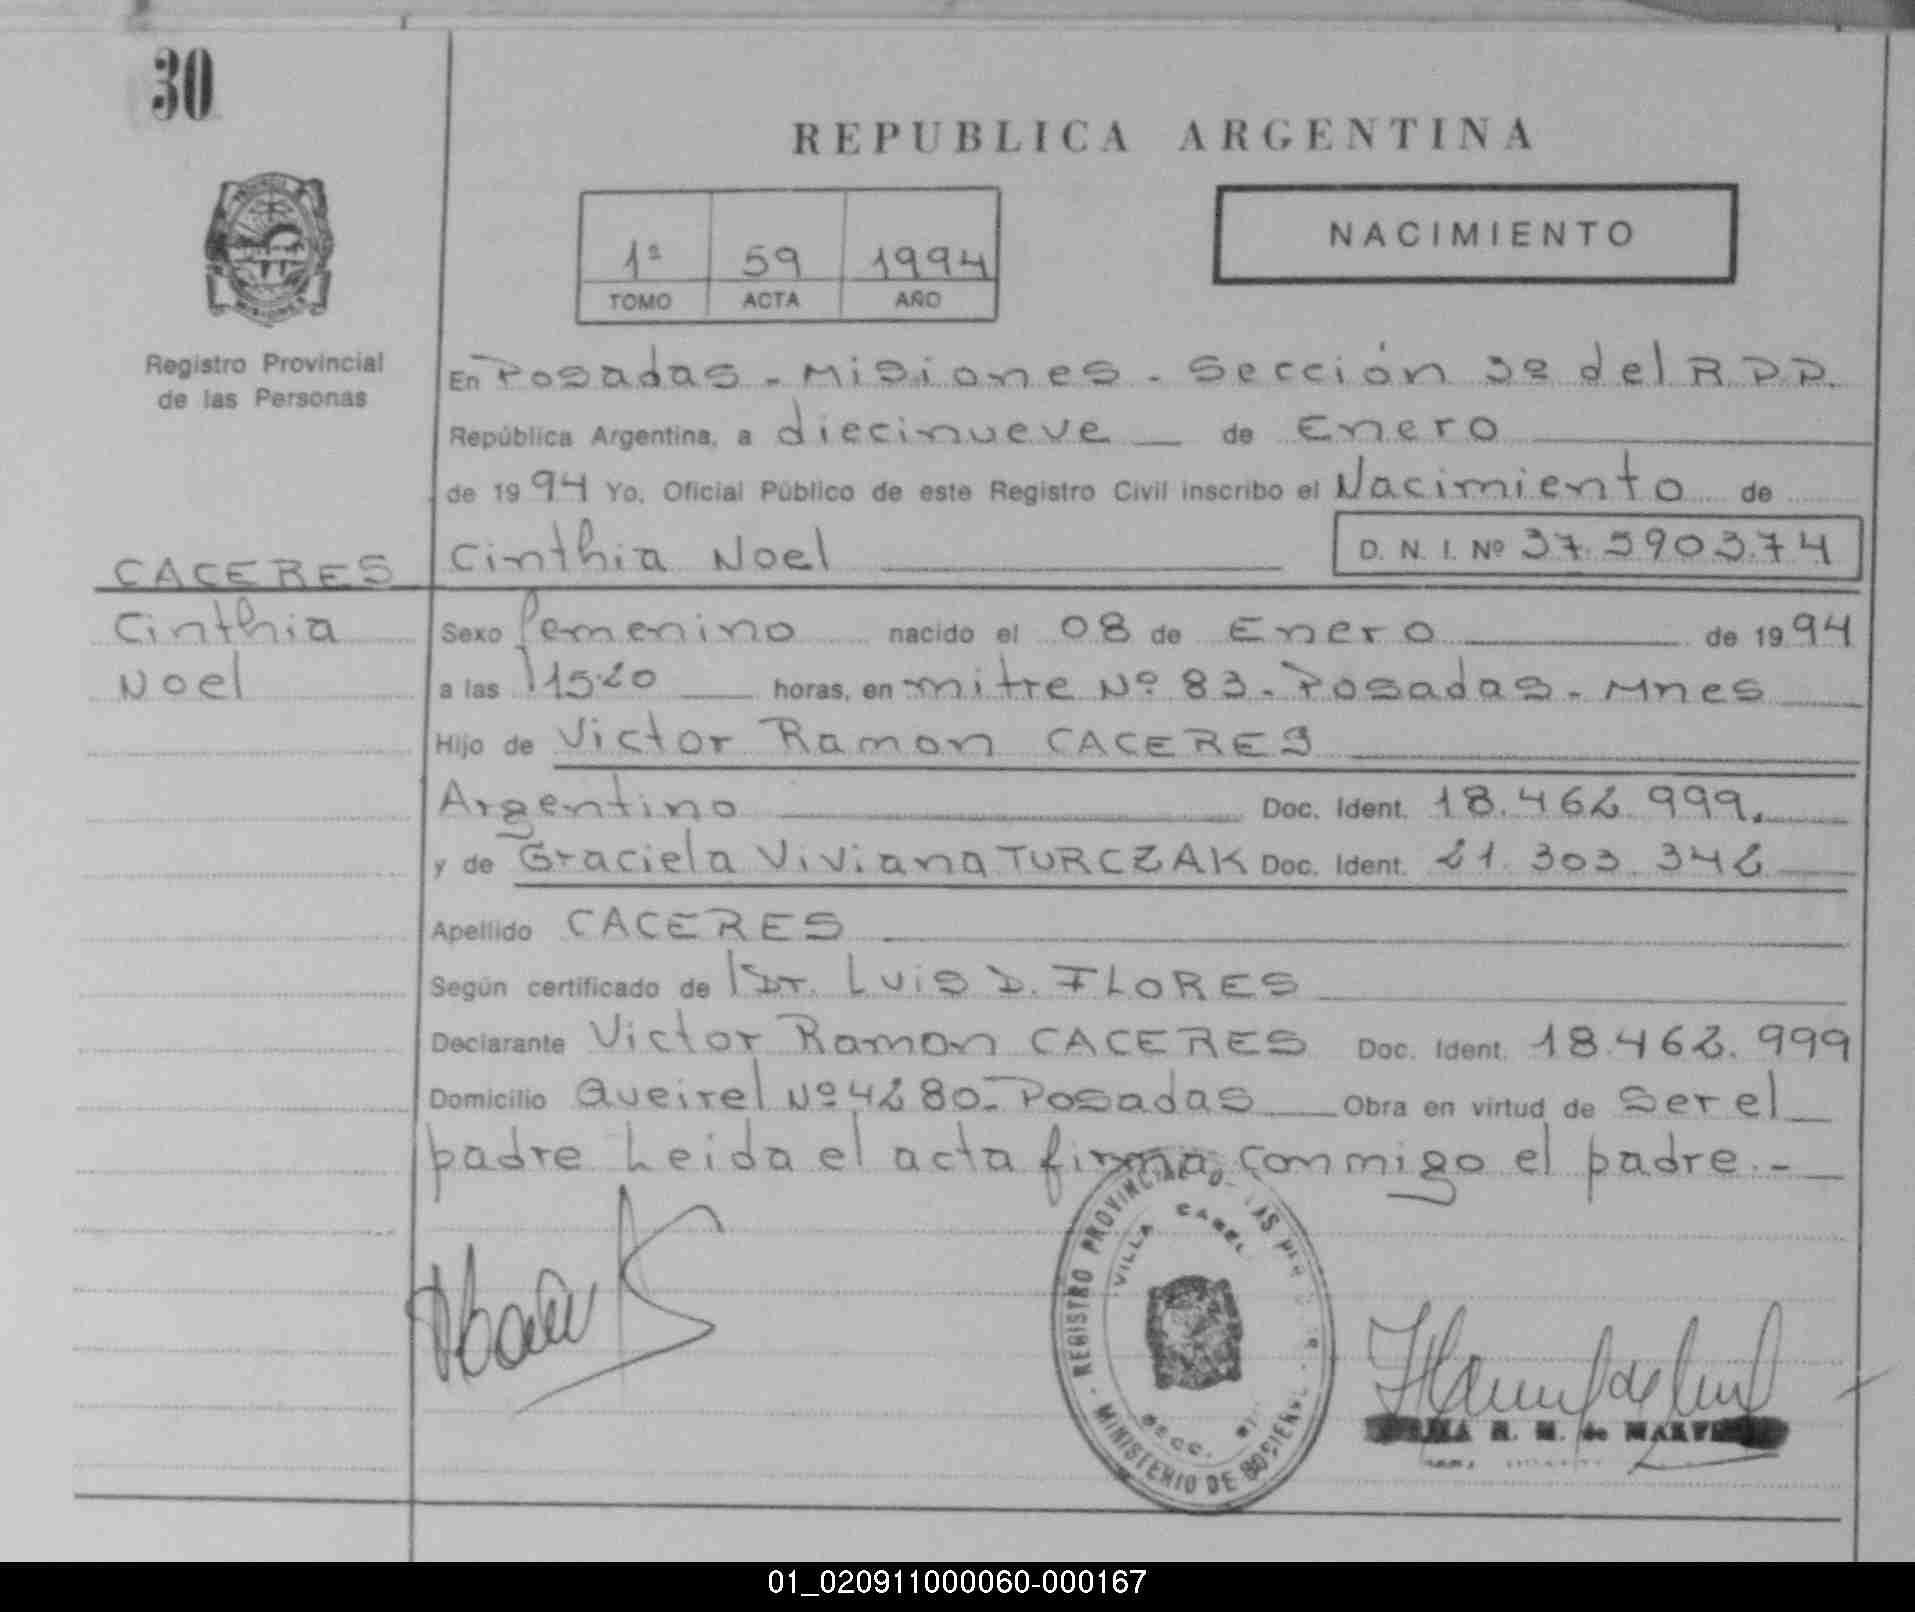 30
REPUBLICA ARGENTINA
NACIMIENTO
1º 59 1994
TOMO ACTA AÑO
Registro Provincial
de las Personas
En Posadas - Misiones - Sección 3º del R.P.P.
República Argentina, a diecinueve de Enero
de 1994 Yo, Oficial Público de este Registro Civil inscribo el Nacimiento de
Cinthia Noel D. N. I. Nº 37.590374
CACERES
Cinthia
Noel
Sexo femenino nacido el 08 de Enero de 1994
a las 15:20 horas, en mitre Nº 83 - Posadas - Mnes
Hijo de Victor Ramon CACERES
Argentino Doc. Ident. 18.462.999.
y de Graciela Viviana TURCZAK Doc. Ident. 21.303.342
Apellido CACERES
Según certificado de Dr. Luis D. FLORES
Declarante Victor Ramon CACERES Doc. Ident. 18.462.999
Domicilio Queirel Nº 4280 - Posadas Obra en virtud de Ser el
padre Leida el acta firma conmigo el padre.-
REGISTRO PROVINCIAL
VILLA CABEL
SECC.
MINISTERIO DE
01_020911000060-000167